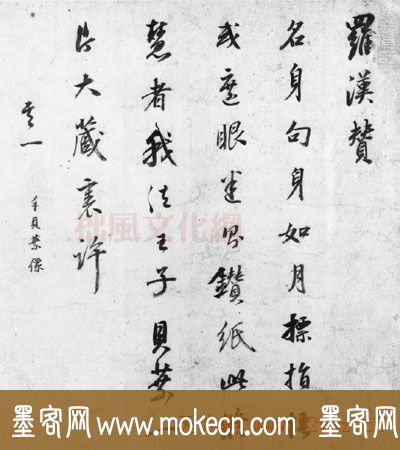 羅漢贊
名身句身如月摽指
或遮眼迷鑽紙此
慧者我法王子貝葉
片大藏裏許
一
手貝葉像
風文化網
墨客网 www.mokecn.com 墨客网